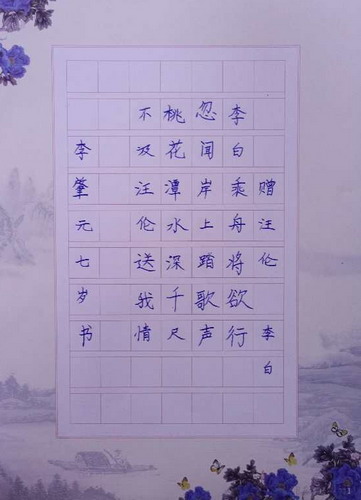 赠汪伦 李白
李白乘舟将欲行
忽闻岸上踏歌声
桃花潭水深千尺
不汲汪伦送我情
李肇元七岁书